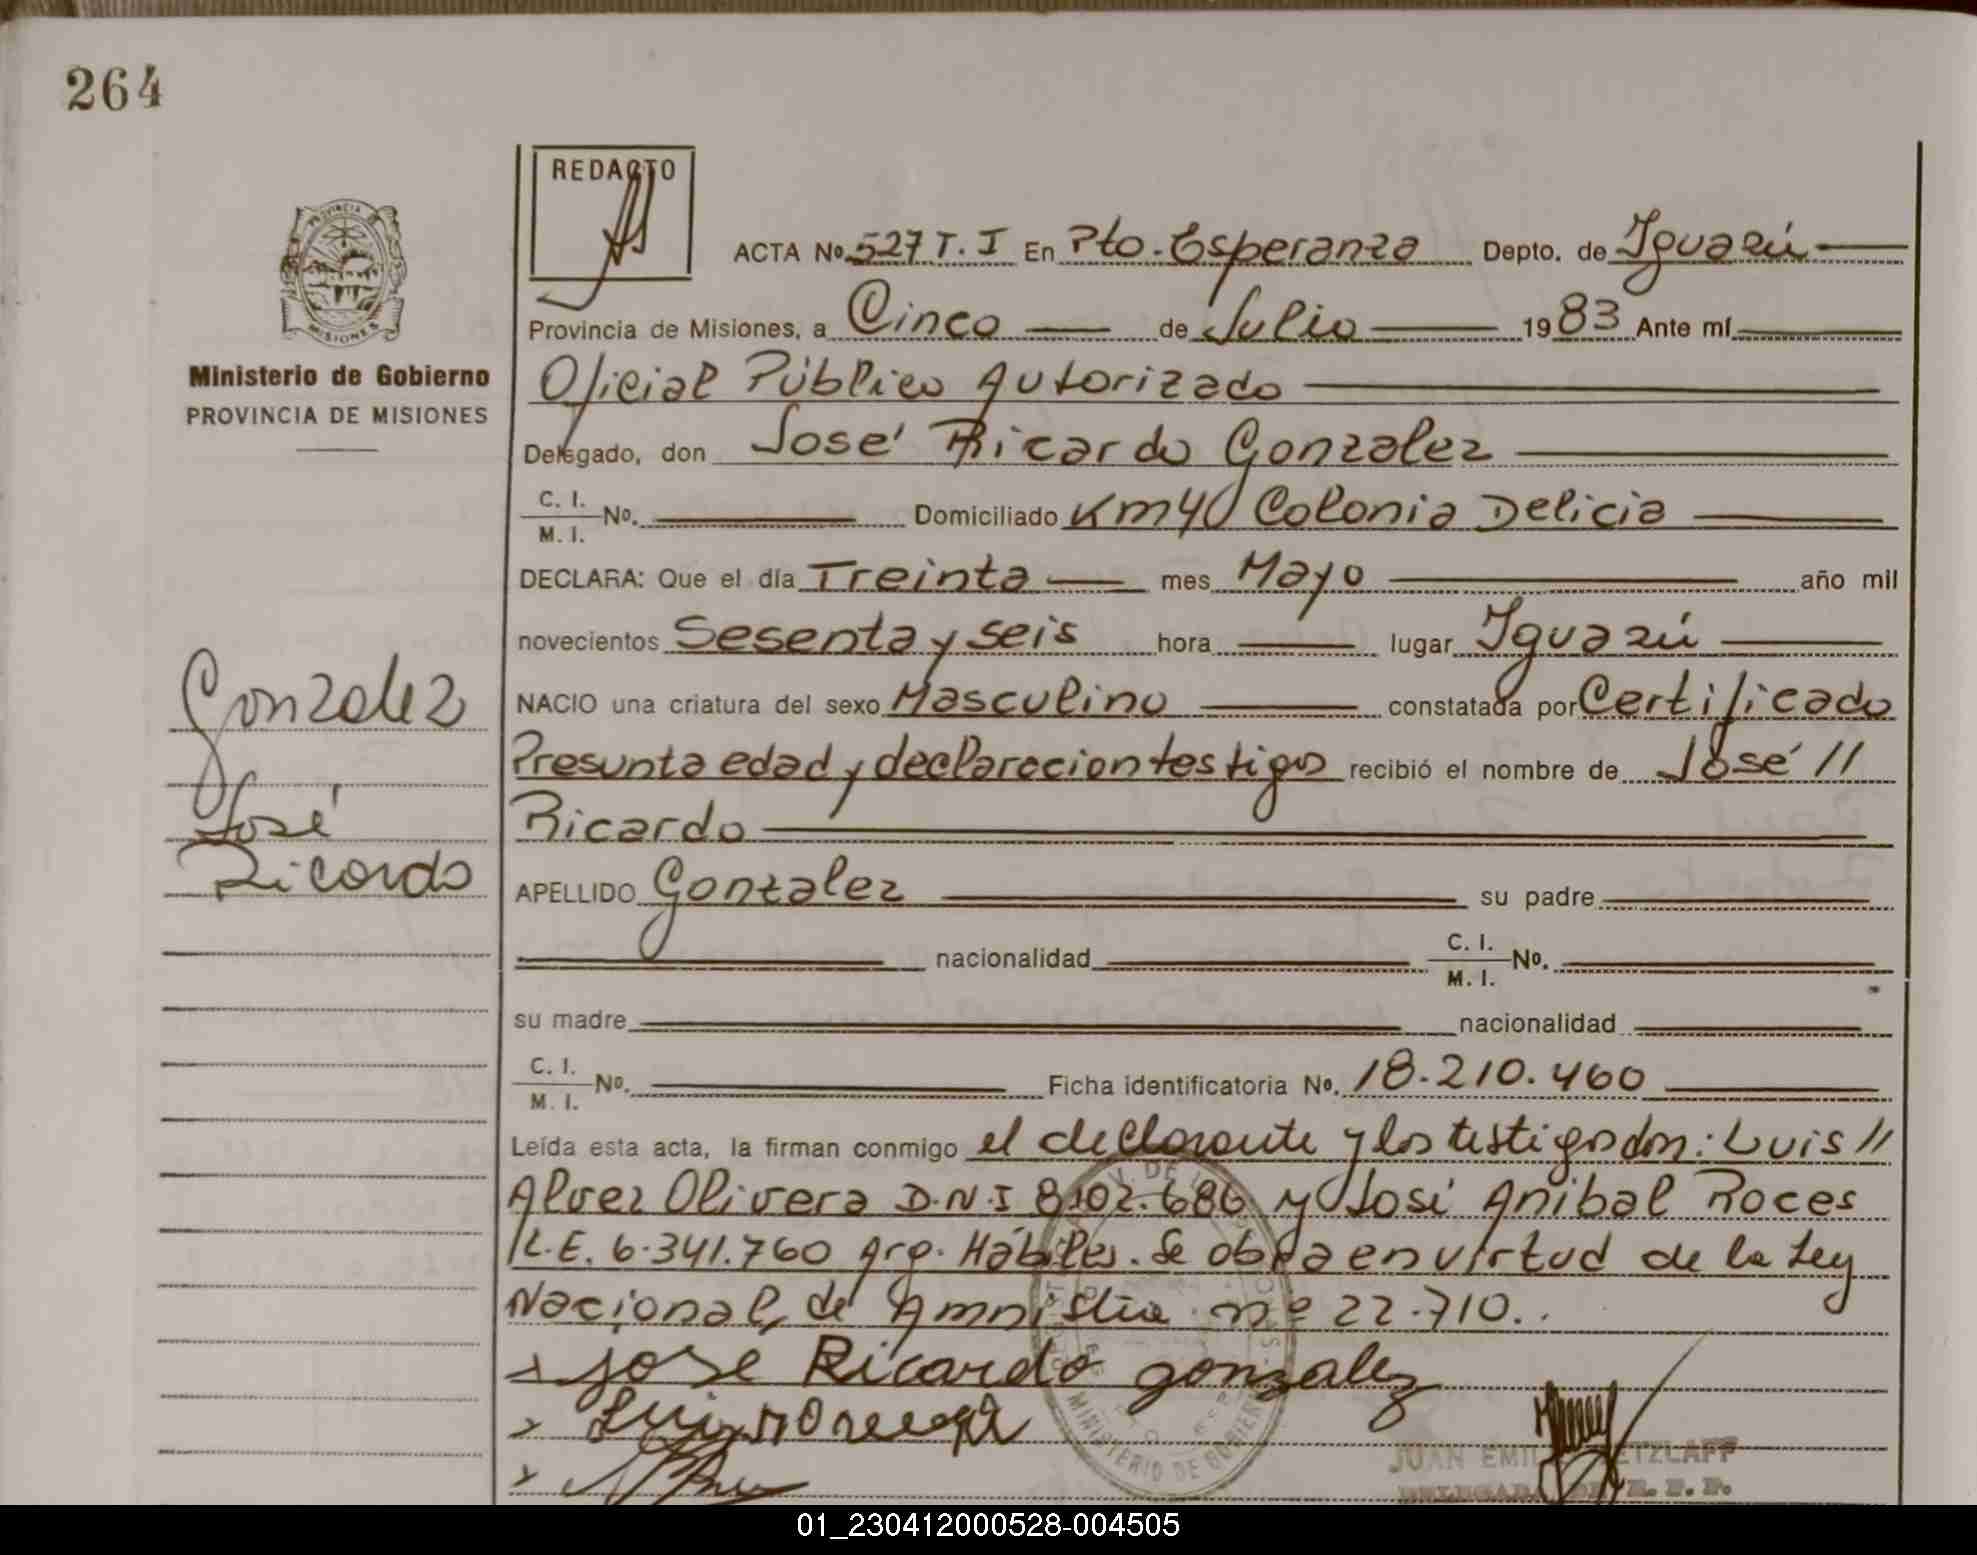 264
REDACTO
ACTA No. 527 T. I En Pto. Esperanza Depto. de Iguazú
Provincia de Misiones, a Cinco de Julio 1983 Ante mí
Ministerio de Gobierno
PROVINCIA DE MISIONES
Oficial Público Autorizado
Delegado, don José Ricardo Gonzalez
C. I.
M. I. No. Domiciliado Km 40 Colonia Delicia
DECLARA: Que el día Treinta mes Mayo año mil
novecientos Sesenta y seis hora lugar Iguazú
NACIO una criatura del sexo Masculino constatada por Certificado
Presunta edad y declaracion testigos recibió el nombre de José //
Ricardo
Gonzalez
José
Ricardo
APELLIDO Gonzalez su padre
nacionalidad C. I.
M. I. No.
su madre nacionalidad
C. I.
M. I. No. Ficha identificatoria No. 18.210.460
Leída esta acta, la firman conmigo el declarante y los testigos don: Luis //
Alvez Olivera D.N.I 8.102.686 y José Anibal Roces
L.E. 6.341.760 Arg. Hábiles. Se obra en virtud de la Ley
Nacional, de Amnistia nº 22.710..
x jose Ricardo gonzalez
MINISTERIO DE GOBIERNO
JUAN EMIL ETZLAFF
DELEGAD R. P. P.
01_230412000528-004505